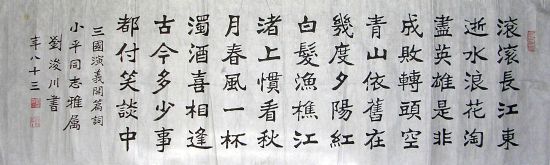 滾滾長江東
逝水浪花淘
盡英雄是非
成敗轉頭空
青山依舊在
幾度夕陽紅
白髮漁樵江
渚上慣看秋
月春風一杯
濁酒喜相逢
古今多少事
都付笑談中
三國演義開篇詞
小平同志雅屬
劉浚川書
年八十三